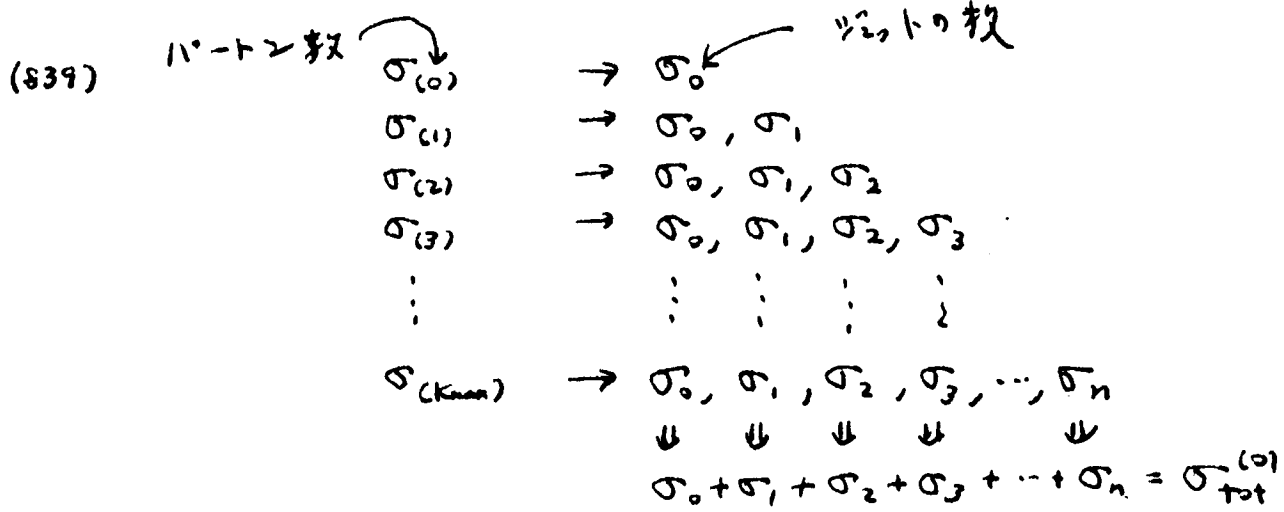 パートン数 ジェットの数
(§39) σ_(0) → σ_0
σ_(1) → σ_0, σ_1
σ_(2) → σ_0, σ_1, σ_2
σ_(3) → σ_0, σ_1, σ_2, σ_3
⋮ ⋮ ⋮ ⋮ ⋮
σ_(Kmax) → σ_0, σ_1, σ_2, σ_3, ⋯, σ_n
⇓ ⇓ ⇓ ⇓ ⇓
σ_0 + σ_1 + σ_2 + σ_3 + ⋯ + σ_n = σ_tot^(0)